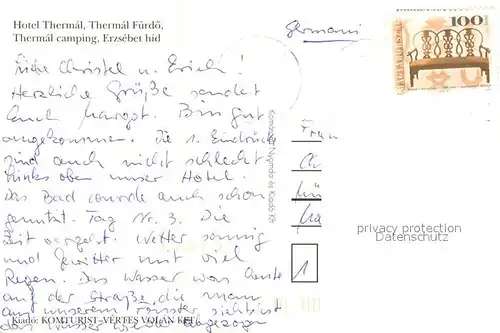 Hotel Thermál, Thermál Fürdő,
Thermál camping, Erzsébet híd
Germani
100
Liebe Christel u. Erich!
Herzliche Grüße sendet
Euch Margot. Bin gut
angekommen. Die 1. Eindrücke
sind auch nicht schlecht.
Links oben unser Hotel.
Das Bad wurde auch schon
genutzt. Tag Nr. 3. Die
Zeit vergeht. Wetter sonnig
und Gewitter mit viel
Regen. Das Wasser was heute
auf der Straße, die man
aus unserem Fenster sieht ist
das Wasser wieder abgezogen
Frau
Ch
Komáromi Nyomda és Kiadó Kft
privacy protection
Kiadó: KOMTURIST–VÉRTES VOLÁN Kft.